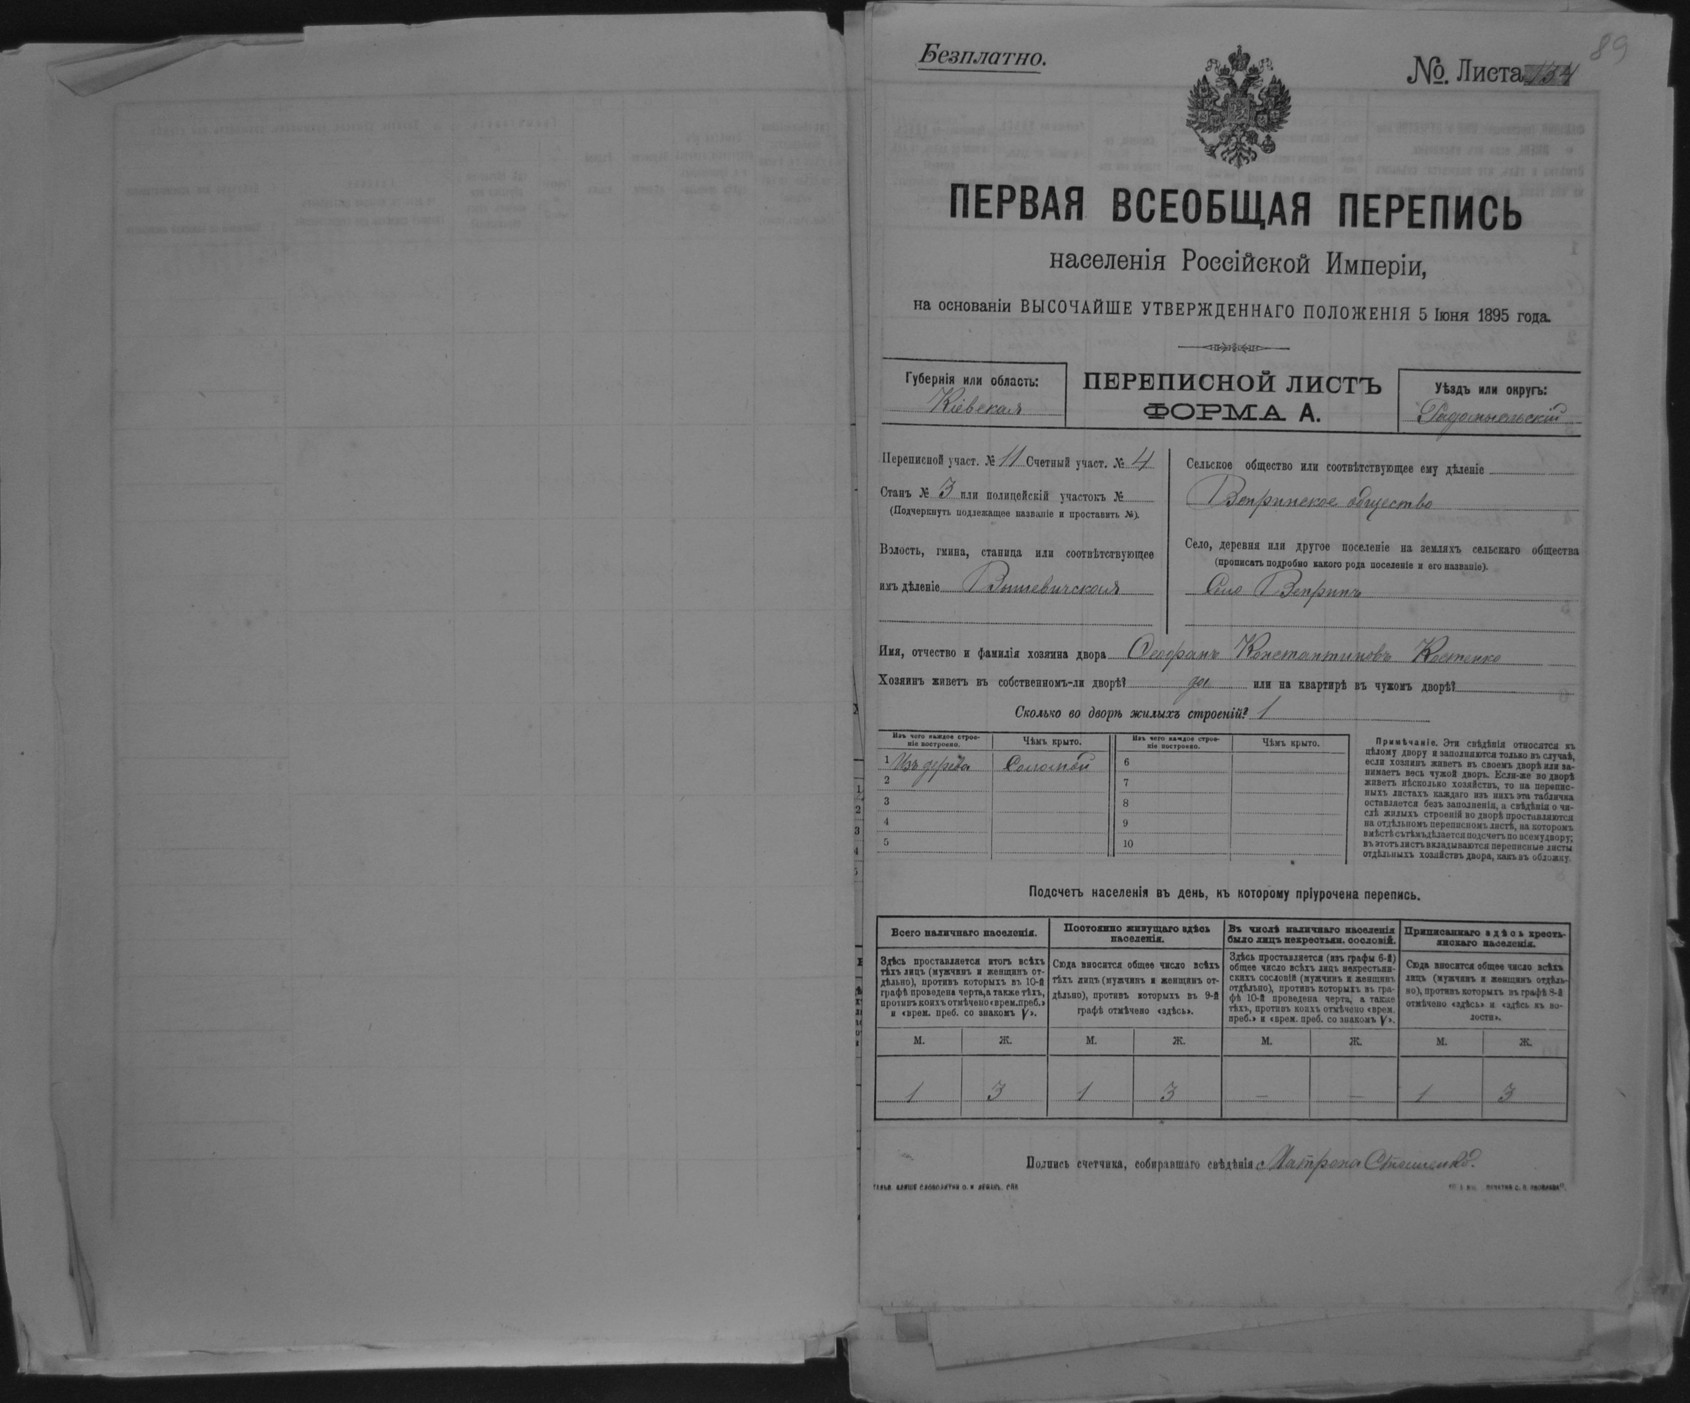 89
Безплатно.
№. Листа 154
ПЕРВАЯ ВСЕОБЩАЯ ПЕРЕПИСЬ
населенія Россійской Имперіи,
на основаніи ВЫСОЧАЙШЕ УТВЕРЖДЕННАГО ПОЛОЖЕНІЯ 5 Іюня 1895 года.
Губернія или область:
Кіевская
ПЕРЕПИСНОЙ ЛИСТЪ
ФОРМА А.
Уѣздъ или округъ:
Радомысльскій
Переписной участ. № 11 Счетный участ. № 4
Станъ № 3 или полицейскій участокъ №
(Подчеркнуть подлежащее названіе и проставить №).
Волость, гмина, станица или соотвѣтствующее
имъ дѣленіе Вышевичская
Сельское общество или соотвѣтствующее ему дѣленіе
Вепринское общество
Село, деревня или другое поселеніе на земляхъ сельскаго общества
(прописать подробно какого рода поселеніе и его названіе).
Село Вепринъ
Имя, отчество и фамилія хозяина двора Феофанъ Константиновъ Костенко
Хозяинъ живетъ въ собственномъ-ли дворѣ? да или на квартирѣ въ чужомъ дворѣ?
Сколько во дворѣ жилыхъ строеній? 1
Изъ чего каждое строе-
ніе построено.
Чѣмъ крыто.
Изъ чего каждое строе-
ніе построено.
Чѣмъ крыто.
1 Изъ дерева Соломой 6
2 7
3 8
4 9
5 10
Примѣчаніе. Эти свѣдѣнія относятся къ
цѣлому двору и заполняются только въ случаѣ,
если хозяинъ живетъ въ своемъ дворѣ или за-
нимаетъ весь чужой дворъ. Если-же во дворѣ
живетъ нѣсколько хозяйствъ, то на перепис-
ныхъ листахъ каждаго изъ нихъ эта табличка
оставляется безъ заполненія, а свѣдѣнія о чи-
слѣ жилыхъ строеній во дворѣ проставляются
на отдѣльномъ переписномъ листѣ, на которомъ
вмѣстѣ съ тѣмъ дѣлается подсчетъ по всему двору;
въ этотъ листъ вкладываются переписные листы
отдѣльныхъ хозяйствъ двора, какъ въ обложку.
Подсчетъ населенія въ день, къ которому пріурочена перепись.
Всего наличнаго населенія.
Здѣсь проставляется итогъ всѣхъ
тѣхъ лицъ (мужчинъ и женщинъ от-
дѣльно), противъ которыхъ въ 10-й
графѣ проведена черта, а также тѣхъ,
противъ коихъ отмѣчено «врем. преб.»
и «врем. преб. со знакомъ V».
Постоянно живущаго здѣсь
населенія.
Сюда вносится общее число всѣхъ
тѣхъ лицъ (мужчинъ и женщинъ от-
дѣльно), противъ которыхъ въ 9-й
графѣ отмѣчено «здѣсь».
Въ числѣ наличнаго населенія
было лицъ некрестьян. сословій.
Здѣсь проставляется (изъ графы 6-й)
общее число всѣхъ лицъ некрестьян-
скихъ сословій (мужчинъ и женщинъ
отдѣльно), противъ которыхъ въ гра-
фѣ 10-й проведена черта, а также
тѣхъ, противъ коихъ отмѣчено «врем.
преб.» и «врем. преб. со знакомъ V».
Приписаннаго здѣсь кресть-
янскаго населенія.
Сюда вносится общее число всѣхъ
лицъ (мужчинъ и женщинъ отдѣль-
но), противъ которыхъ въ графѣ 8-й
отмѣчено «здѣсь» и «здѣсь къ во-
лости».
М. Ж. М. Ж. М. Ж. М. Ж.
1 3 1 3 — — 1 3
Подпись счетчика, собиравшаго свѣдѣнія